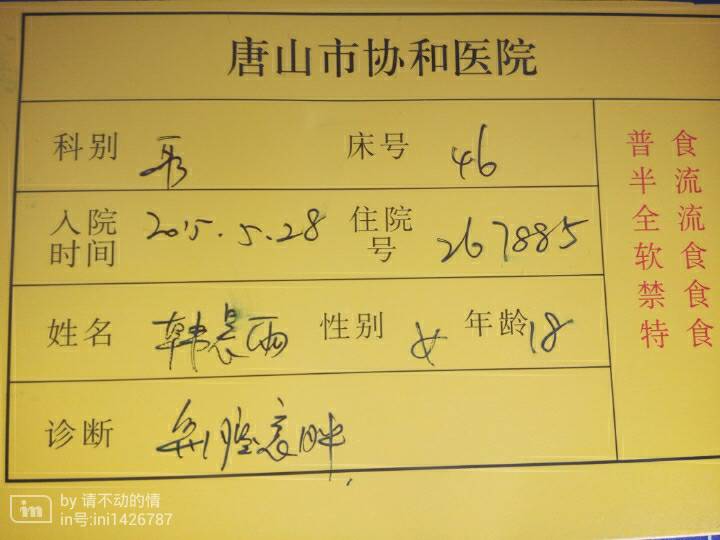 唐山市协和医院
科别 床号 46
入院时间 2015.5.28 住院号 267885
姓名 韩晨雨 性别 女 年龄 18
诊断
普食
半流
全流
软食
禁食
特食
by 请不动的情
in号:ini1426787